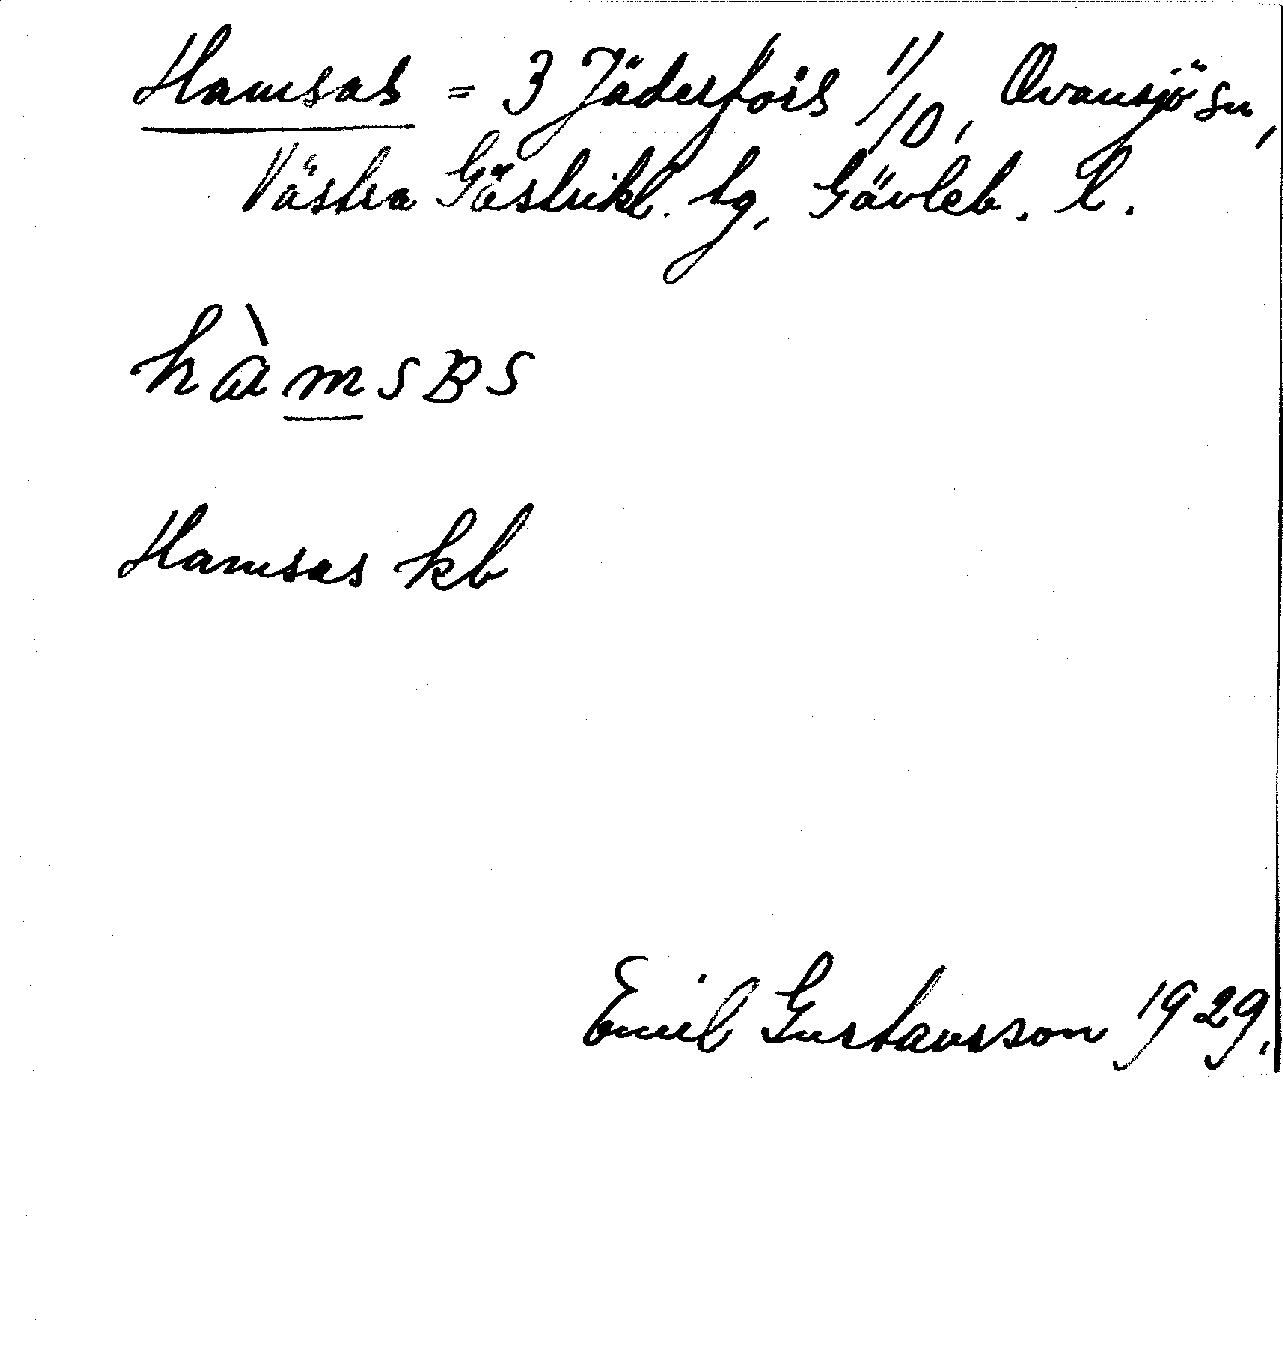 Hamsas = 3 Jäderfors 1/10, Ovansjö sn,
Västra Gästrikl. tg, Gävleb. l.
hàmsBS
Hamsas kb
Emil Gustavsson 1929.